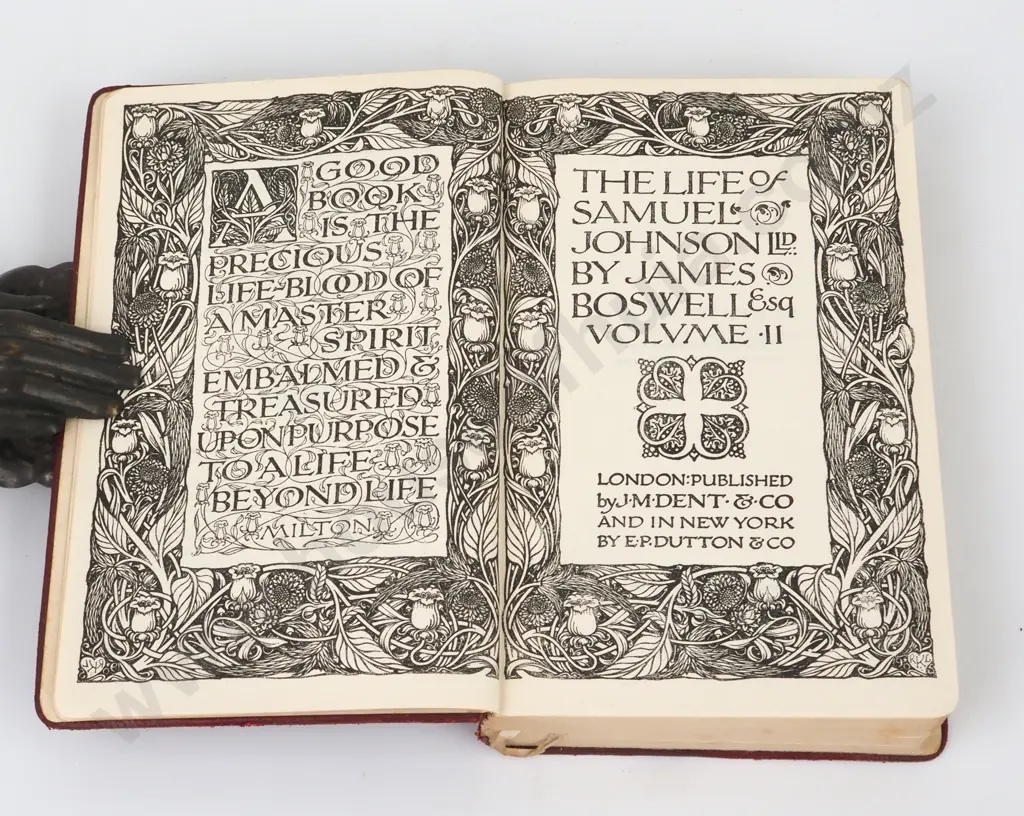 A GOOD
BOOK
IS THE
PRECIOUS
LIFE-BLOOD OF
A MASTER
SPIRIT,
EMBALMED &
TREASURED
UPON PURPOSE
TO A LIFE
BEYOND LIFE
MILTON
THE LIFE of
SAMUEL
JOHNSON LLD.
BY JAMES
BOSWELL Esq
VOLVME · II
LONDON: PUBLISHED
by J·M·DENT· & CO
AND IN NEW YORK
BY E·P·DUTTON & CO